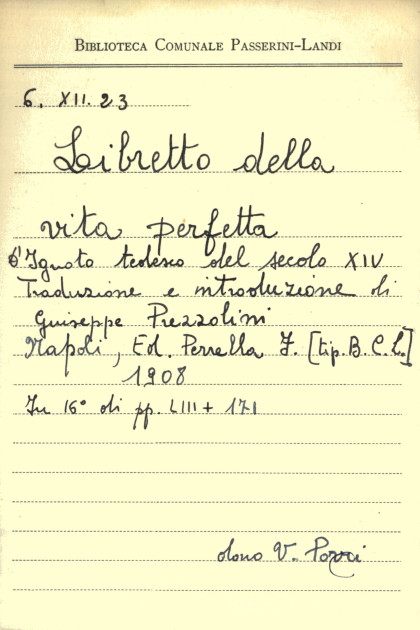 BIBLIOTECA COMUNALE PASSERINI-LANDI
6. XII. 23
Libretto della
vita perfetta
d'Ignoto tedesco del secolo XIV
Traduzione e introduzione di
Giuseppe Prezzolini
Napoli, Ed. Perrella F. [tip. B. C. L.]
1908
In 16° di pp. LIII + 171
dono V.